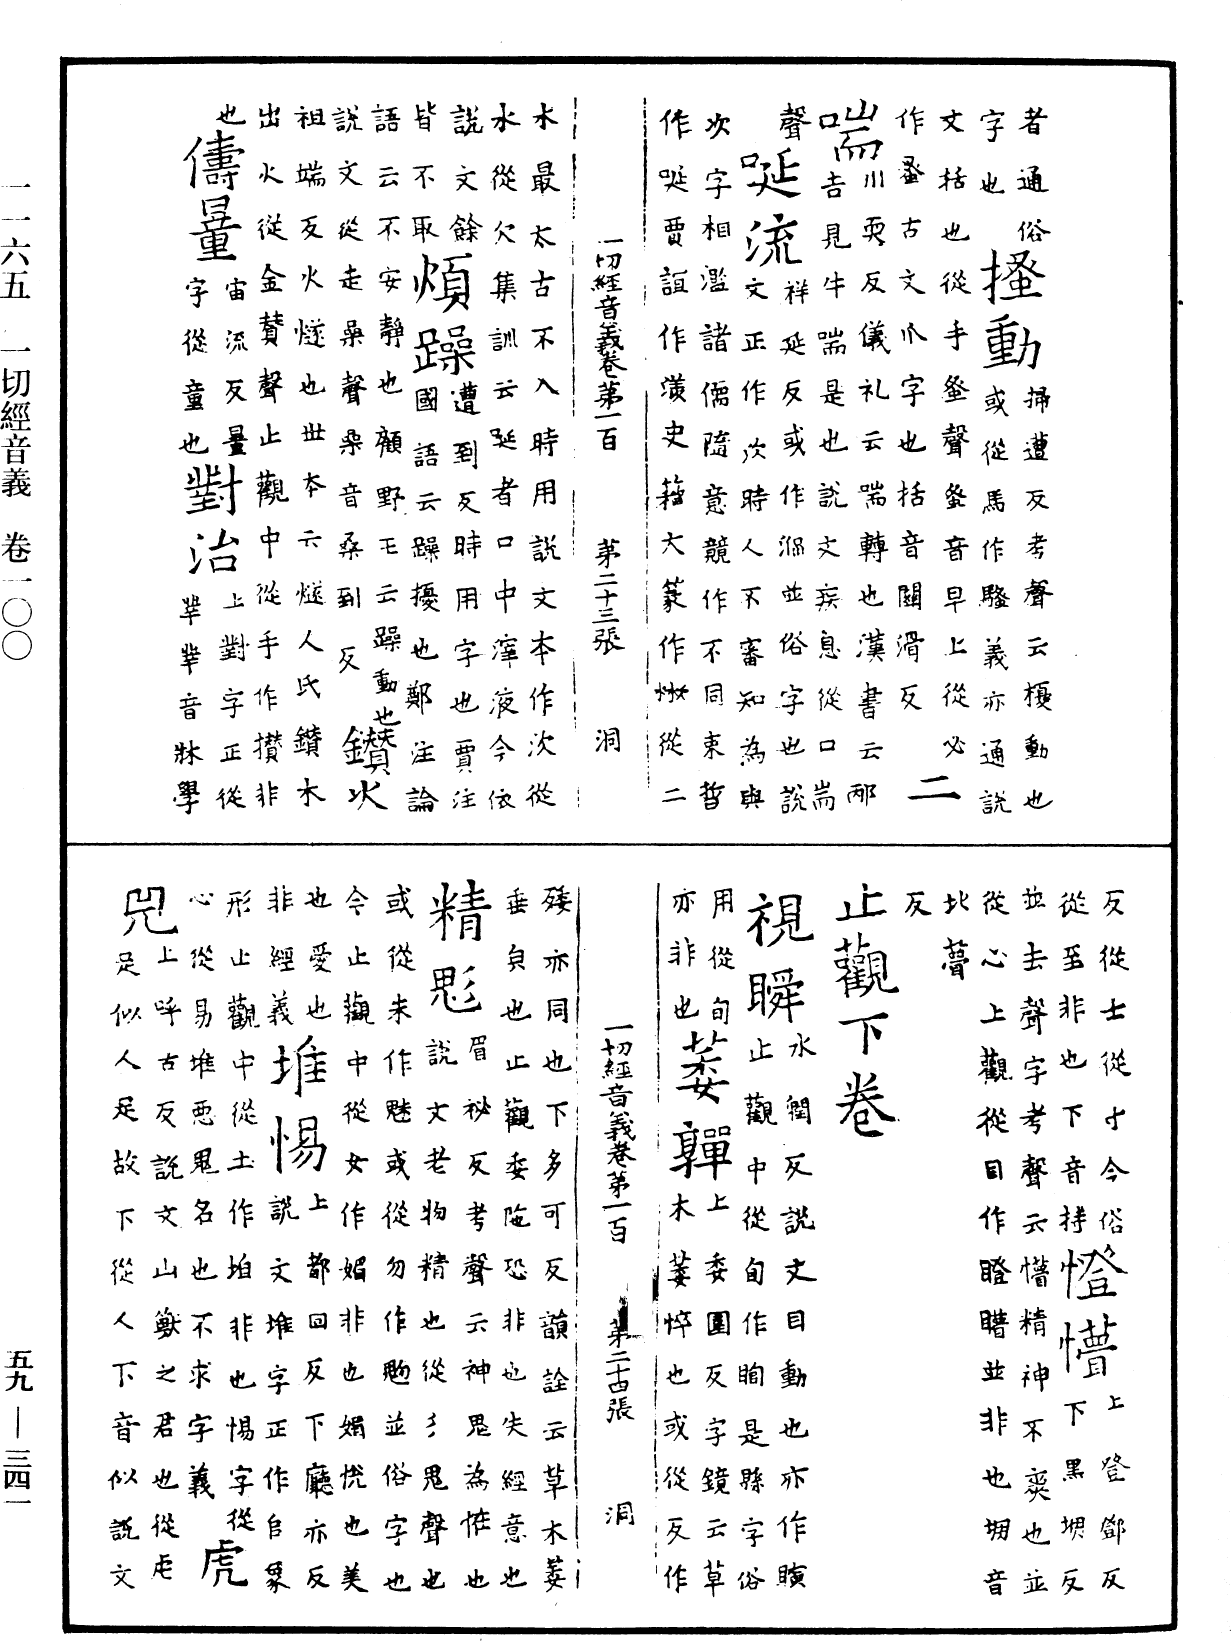 者通俗
字也搔動掃遭反考聲云擾動也
文括也從手蚤聲蚤音早上從必二或從馬作騷義亦通說
作蚤古文爪字也括音關滑反
喘川耎反儀礼云喘轉也漢書云邴
吉見牛喘是也說文疾息從口耑
聲㖤流祥延反或作涎並俗字也說
文正作㳄時人不審知為與
次字相濫諸儒隨意競作不同束晳
作㖤賈誼作㵪史籀大篆作㳄從二
一切經音義卷第一百 第二十三張 洞
水最太古不入時用說文本作㳄從
水從欠集訓云㖤者口中滓液今依
說文餘皆不取煩躁遭到反時用字也賈注
國語云躁擾也鄭注論
語云不安靜也顧野王云躁動也
說文從走喿聲喿音桑到反鑽火
祖端反火燧也世本云燧人氏鑽木
出火從金贊聲止觀中從手作攢非
也儔量宙流反量字從童也對治上對字正從
丵丵音牀學
反從士從寸今俗
從至非也下音持憕懵上登鄧反
下黑堋反
並去聲字考聲云懵精神不爽也並
從心上觀從目作瞪瞢並非也堋音
北蕄
反
止觀下卷
視瞬水潤反說文目動也亦作瞚
止觀中從旬作眴是縣字俗
用從旬萎䕺上委圍反字鏡云草
木萎悴也或從歹作
亦非也
一切經音義卷第一百 第二十四張 洞
殘亦同也下多可反韻詮云草木萎
垂皃也止觀委陁恐非也失經意也
精魅眉祕反考聲云神鬼為怪也
說文老物精也從彡鬼聲也
或從未作魅或從勿作魩並俗字也
今止觀中從女作媚非也媚悅也美
也愛也
非經義堆惕上都回反下廳亦反
說文堆字正作𠂤象
形止觀中從土作垍非也惕字從
心從易堆惕鬼名也不求字義虎
兕上呼古反說文山獸之君也從虍
足似人足故下從人下音似說文
一一六五 一切經音義 卷一〇〇
五九—三四一